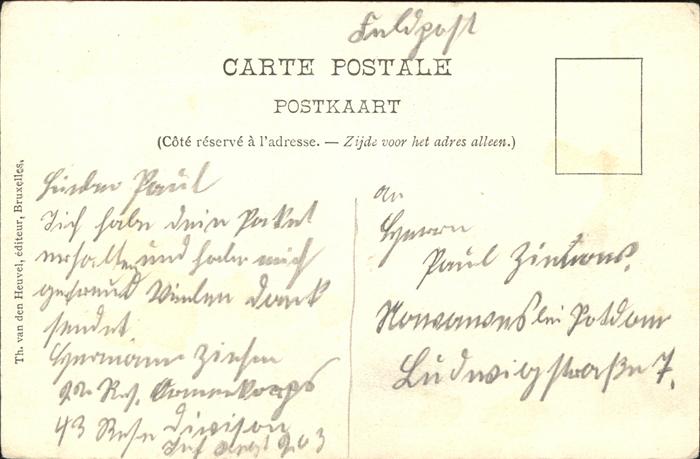 Feldpost
CARTE POSTALE
POSTKAART
(Côté réservé à l'adresse. — Zijde voor het adres alleen.)
Th. van den Heuvel, éditeur, Bruxelles.
Lieber Paul
Ich habe dein Paket
erhalten und habe mich
gefreut Vielen Dank
sendet
Hermann
Res. Armeekorps
43 Res. Division
An
Herrn
Paul
Nowawes bei Potsdam
Ludwigstraße 7.